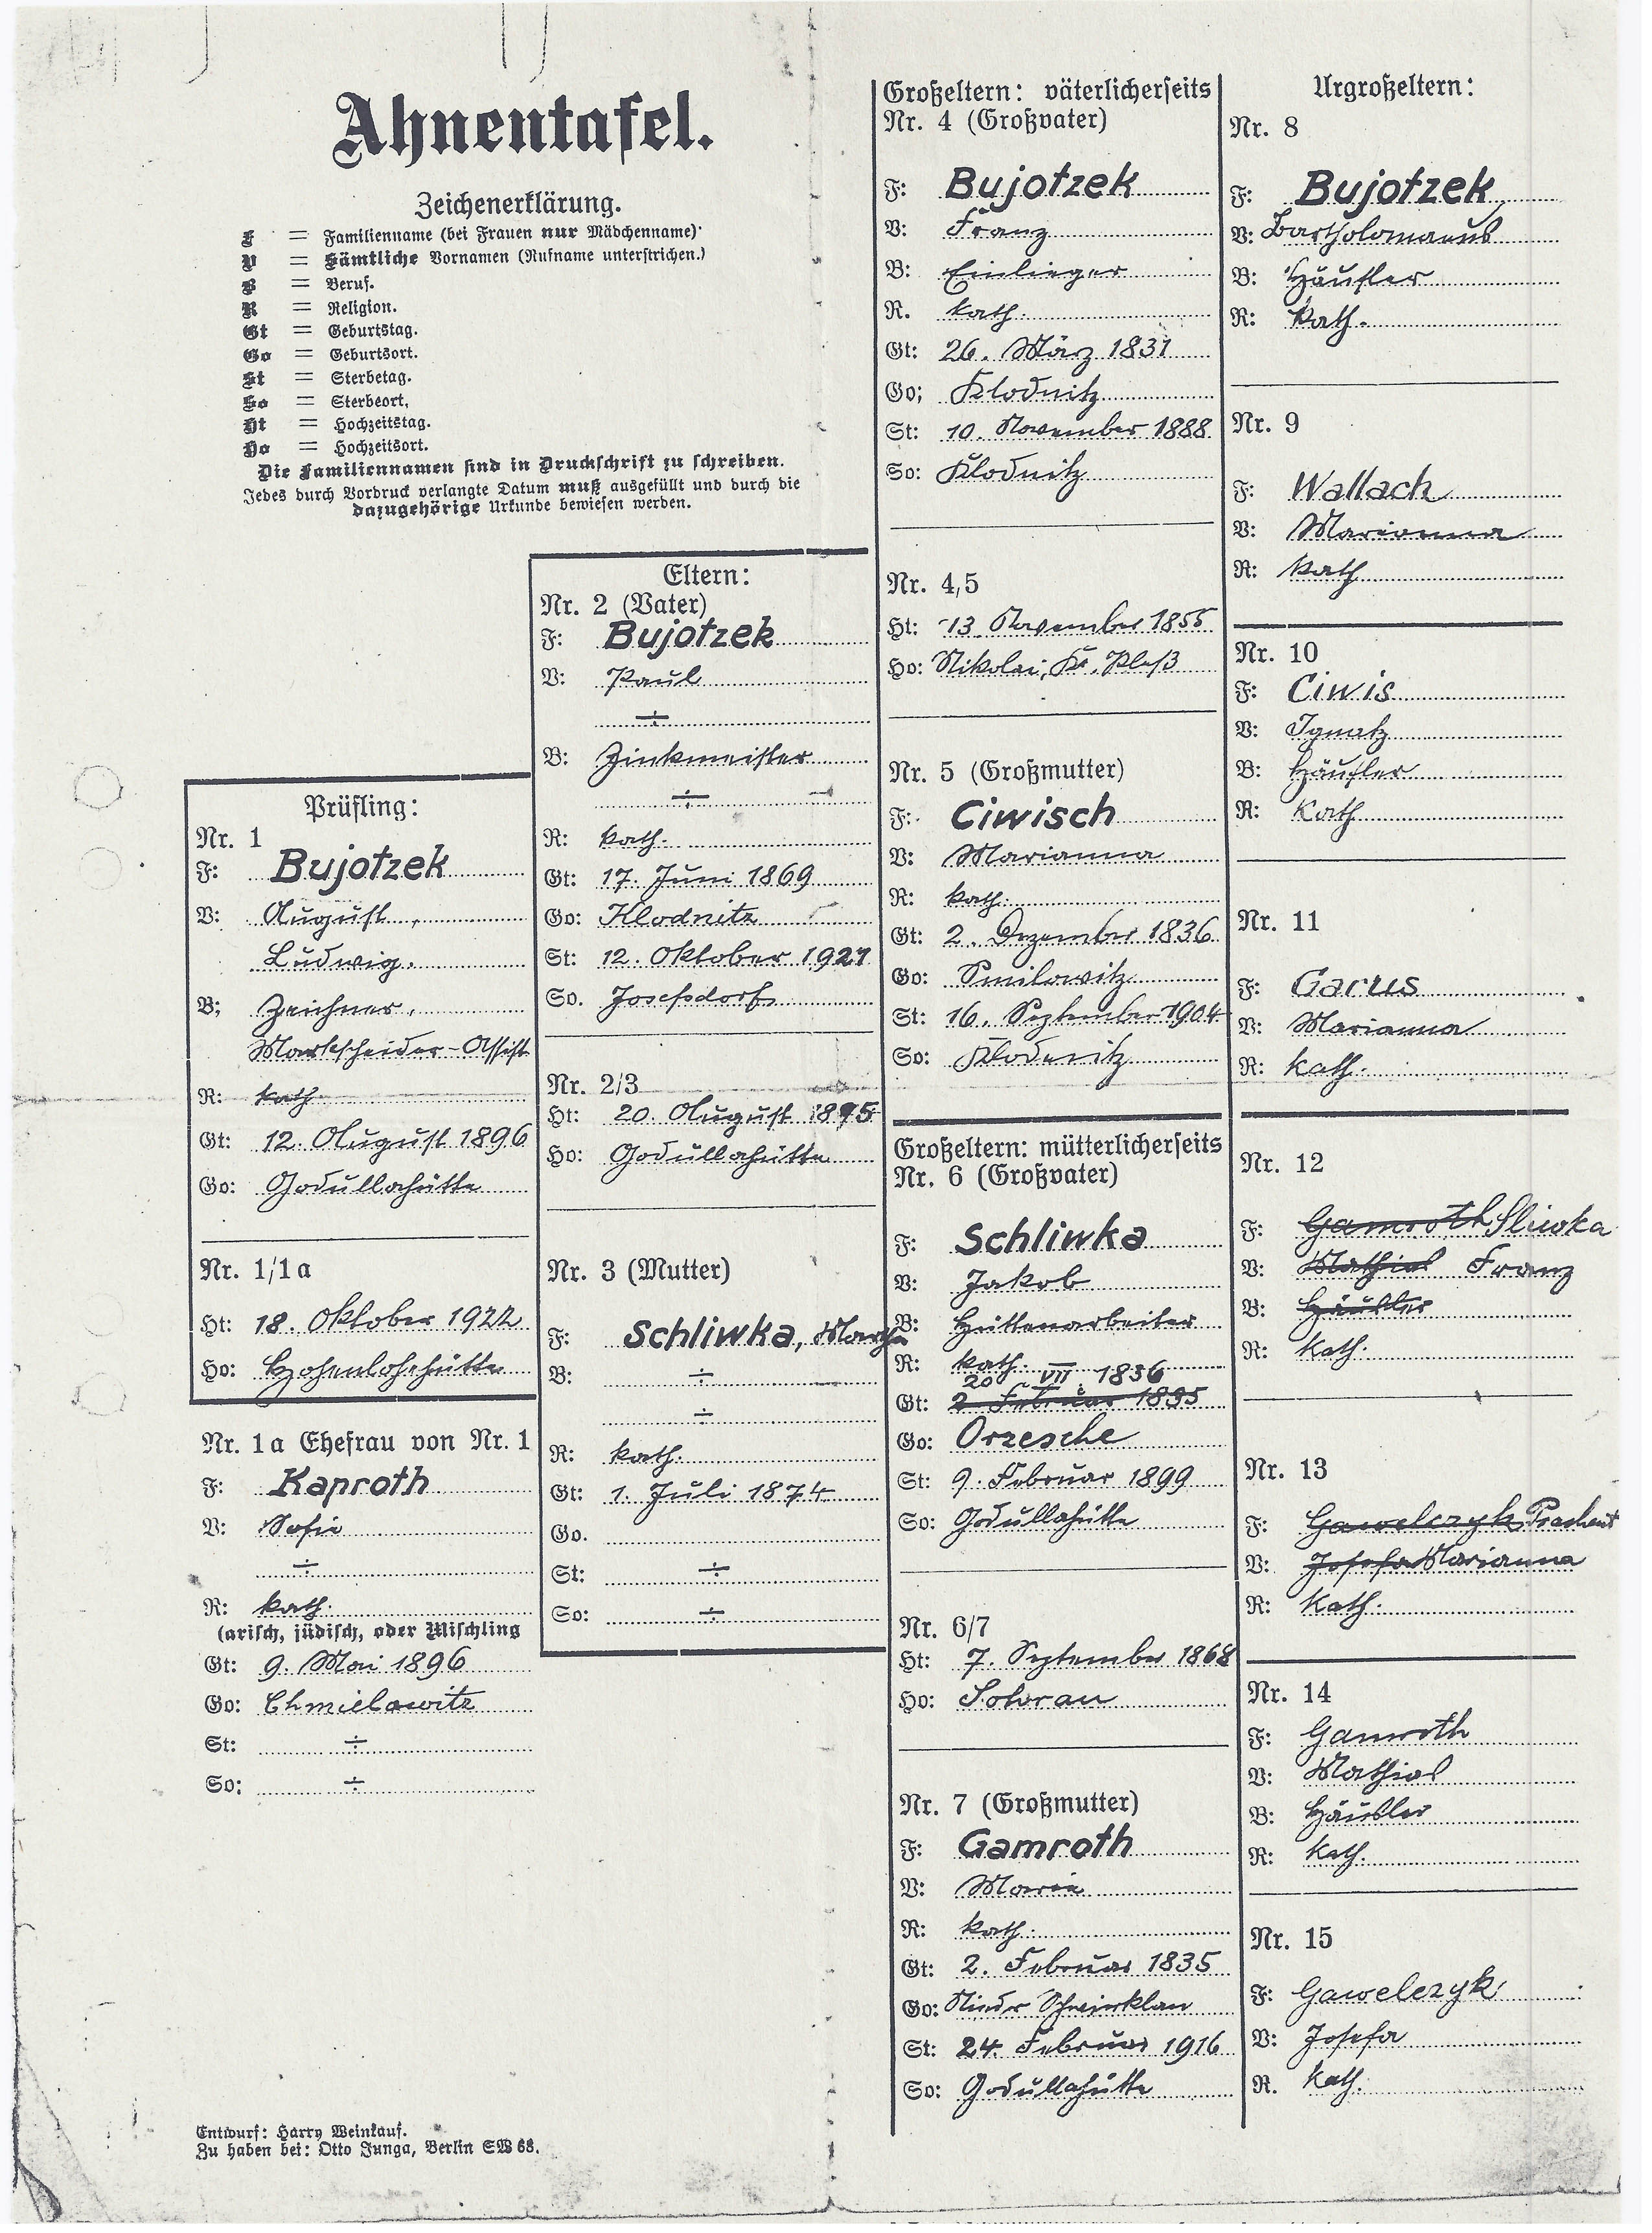 Ahnentafel.
Zeichenerklärung.
F = Familienname (bei Frauen nur Mädchenname)
V = Sämtliche Vornamen (Rufname unterstrichen.)
B = Beruf.
R = Religion.
Gt = Geburtstag.
Go = Geburtsort.
St = Sterbetag.
So = Sterbeort.
Ht = Hochzeitstag.
Ho = Hochzeitsort.
Die Familiennamen sind in Druckschrift zu schreiben.
Jedes durch Vordruck verlangte Datum muß ausgefüllt und durch die
dazugehörige Urkunde bewiesen werden.
Prüfling:
Nr. 1
F: Bujotzek
V: August,
Ludwig.
B: Zeichner,
Markscheider-Assist
R: kath.
Gt: 12. August 1896
Go: Godullahütte
Nr. 1/1a
Ht: 18. Oktober 1922
Ho: Hohenlohehütte
Nr. 1a Ehefrau von Nr. 1
F: Kaproth
V: Sofie
÷
R: kath.
(arisch, jüdisch, oder Mischling
Gt: 9. Mai 1896
Go: Chmielowitz
St: ÷
So: ÷
Entwurf: Harry Weinkauf.
Zu haben bei: Otto Junga, Berlin SW 68.
Eltern:
Nr. 2 (Vater)
F: Bujotzek
V: Paul
÷
B: Zinkmeister
÷
R: kath.
Gt: 17. Juni 1869
Go: Klodnitz
St: 12. Oktober 1921
So. Josefsdorf
Nr. 2/3
Ht: 20. August 1895
Ho: Godullahütte
Nr. 3 (Mutter)
F: Schliwka, Martha
B: ÷
÷
R: kath.
Gt: 1. Juli 1874
Go.
St: ÷
So: ÷
Großeltern: väterlicherseits
Nr. 4 (Großvater)
F: Bujotzek
V: Franz
B: Einlieger
R. kath.
Gt: 26. März 1831
Go; Klodnitz
St: 10. November 1888
So: Klodnitz
Nr. 4,5
Ht: 13. November 1855
Ho: Nikolai, Kr. Pleß
Nr. 5 (Großmutter)
F: Ciwisch
V: Marianna
R: kath.
Gt: 2. Dezember 1836
Go: Smilowitz
St: 16. September 1904
So: Klodnitz
Großeltern: mütterlicherseits
Nr. 6 (Großvater)
F: Schliwka
V: Jakob
B: Hüttenarbeiter
R: kath.
20 VII. 1836
Gt: 2 Februar 1835
Go: Orzesche
St: 9. Februar 1899
So: Godullahütte
Nr. 6/7
Ht: 7. September 1868
Ho: Sohrau
Nr. 7 (Großmutter)
F: Gamroth
V: Marie
R: kath.
Gt: 2. Februar 1835
Go: Nieder Schwirklan
St: 24. Februar 1916
So: Godullahütte
Urgroßeltern:
Nr. 8
F: Bujotzek
V: Bartholomaeus
B: Häusler
R: kath.
Nr. 9
F: Wallach
V: Marianna
R: kath
Nr. 10
F: Ciwis
V: Ignatz
B: Häusler
R: Kath
Nr. 11
F: Garus
V: Marianna
R: kath.
Nr. 12
F: Gamroth Sliwka
V: Mathias Franz
B: Häusler
R: kath.
Nr. 13
F: Gawelczyk
V: Josefa Marianna
R: kath.
Nr. 14
F: Gamroth
V: Mathias
B: Häusler
R: kath.
Nr. 15
F: Gawelczyk
V: Josefa
R. kath.